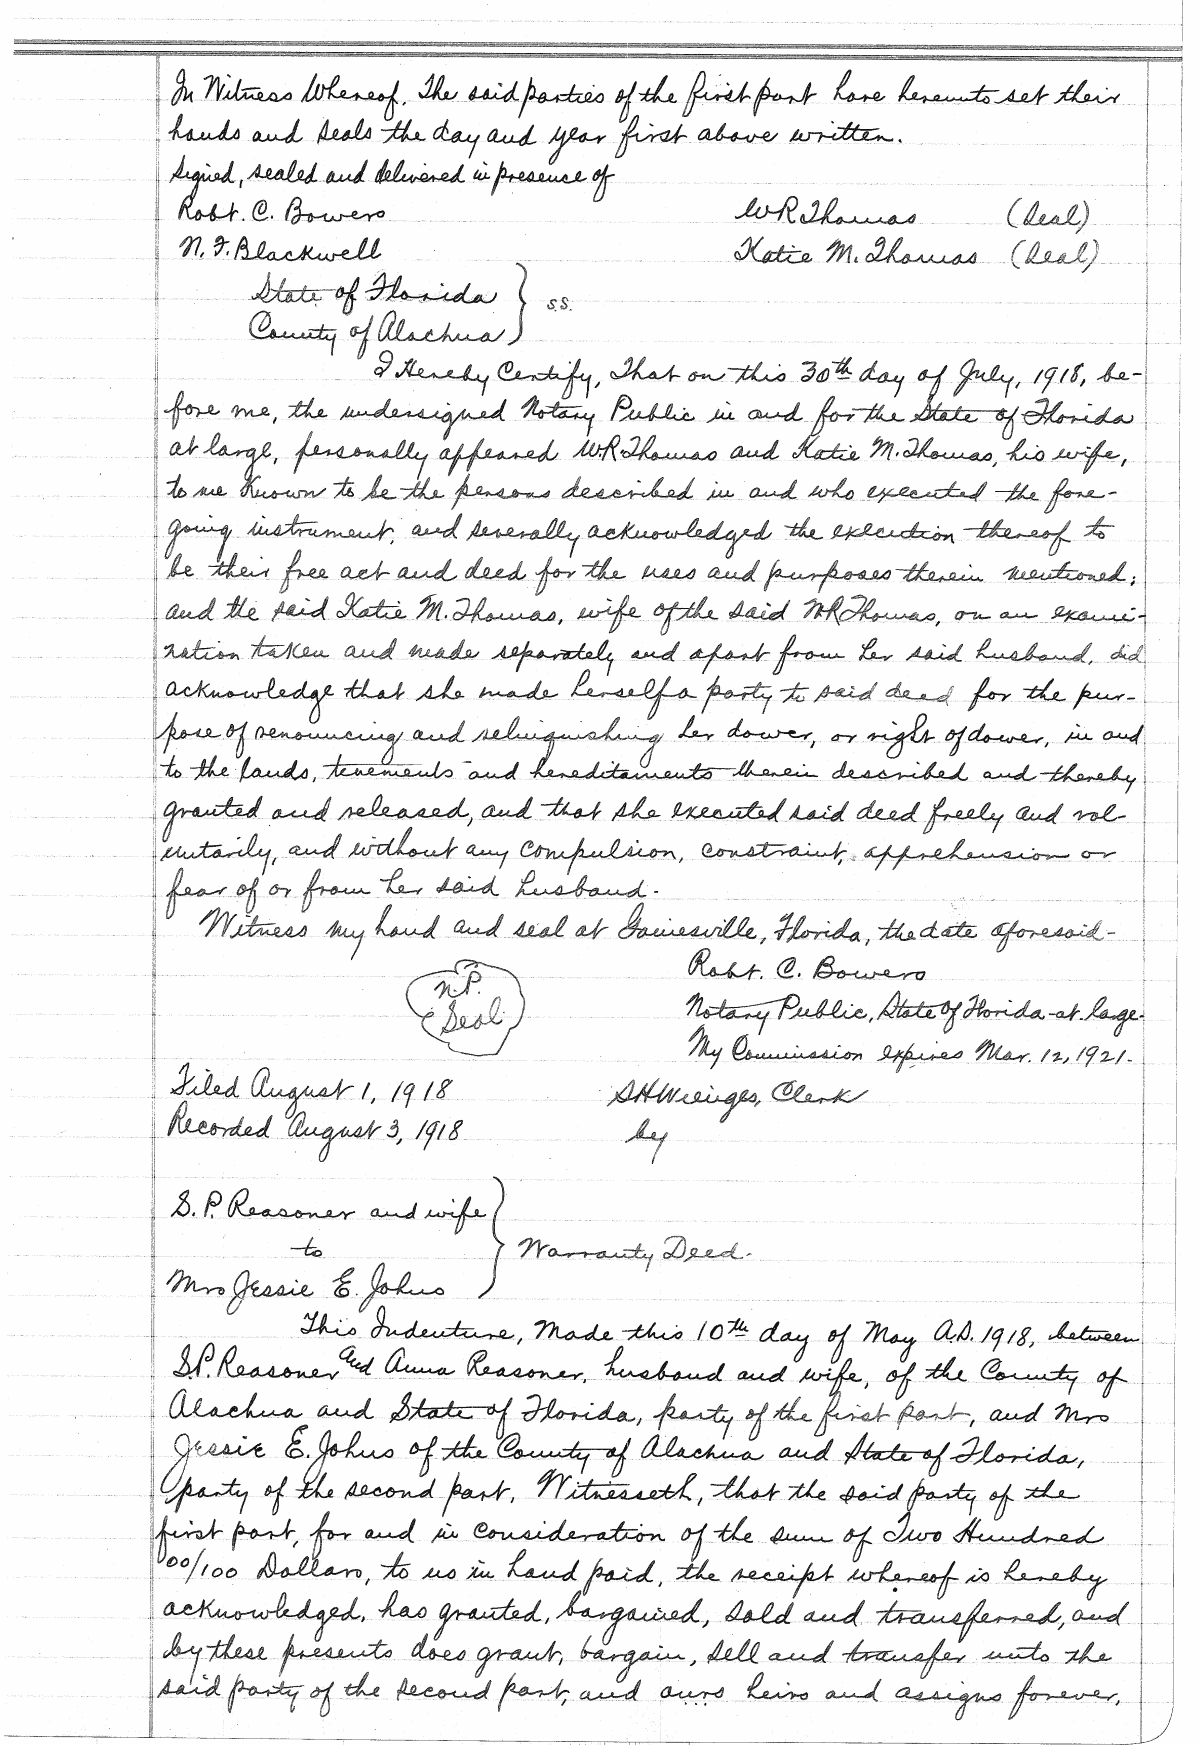 In Witness Whereof, The said parties of the first part have hereunto set their
hands and seals the day and year first above written.
Signed, sealed and delivered in presence of
Robt. C. Bowers W R Thomas (Seal)
N. F. Blackwell Katie M. Thomas (Seal)
State of Florida } s.s.
County of Alachua
I Hereby Certify, That on this 30th day of July, 1918, be-
fore me, the undersigned Notary Public in and for the State of Florida
at large, personally appeared W R Thomas and Katie M. Thomas, his wife,
to me Known to be the persons described in and who executed the fore-
going instrument, and severally acknowledged the execution thereof to
be their free act and deed for the uses and purposes therein mentioned;
and the said Katie M. Thomas, wife of the said W R Thomas, on an exami-
nation taken and made separately and apart from her said husband, did
acknowledge that she made herself a party to said deed for the pur-
pose of renouncing and relinquishing her dower, or right of dower, in and
to the lands, tenements and hereditaments therein described and thereby
granted and released, and that she executed said deed freely and vol-
untarily, and without any compulsion, constraint, apprehension or
fear of or from her said husband.
Witness my hand and seal at Gainesville, Florida, the date aforesaid-
N.P. Robt. C. Bowers
Seal Notary Public, State of Florida-at-large.
My Commission expires Mar. 12, 1921.
Filed August 1, 1918 S H Wienges, Clerk
Recorded August 3, 1918 by
S. P. Reasoner and wife
to } Warranty Deed.
Mrs Jessie E. Johns
This Indenture, Made this 10th day of May A.D. 1918, between
S.P. Reasoner and Anna Reasoner, husband and wife, of the County of
Alachua and State of Florida, party of the first part, and Mrs
Jessie E. Johns of the County of Alachua and State of Florida,
party of the second part, Witnesseth, that the said party of the
first part, for and in consideration of the sum of Two Hundred
00/100 Dollars, to us in hand paid, the receipt whereof is hereby
acknowledged, has granted, bargained, sold and transferred, and
by these presents does grant, bargain, sell and transfer unto the
said party of the second part, and ours heirs and assigns forever,